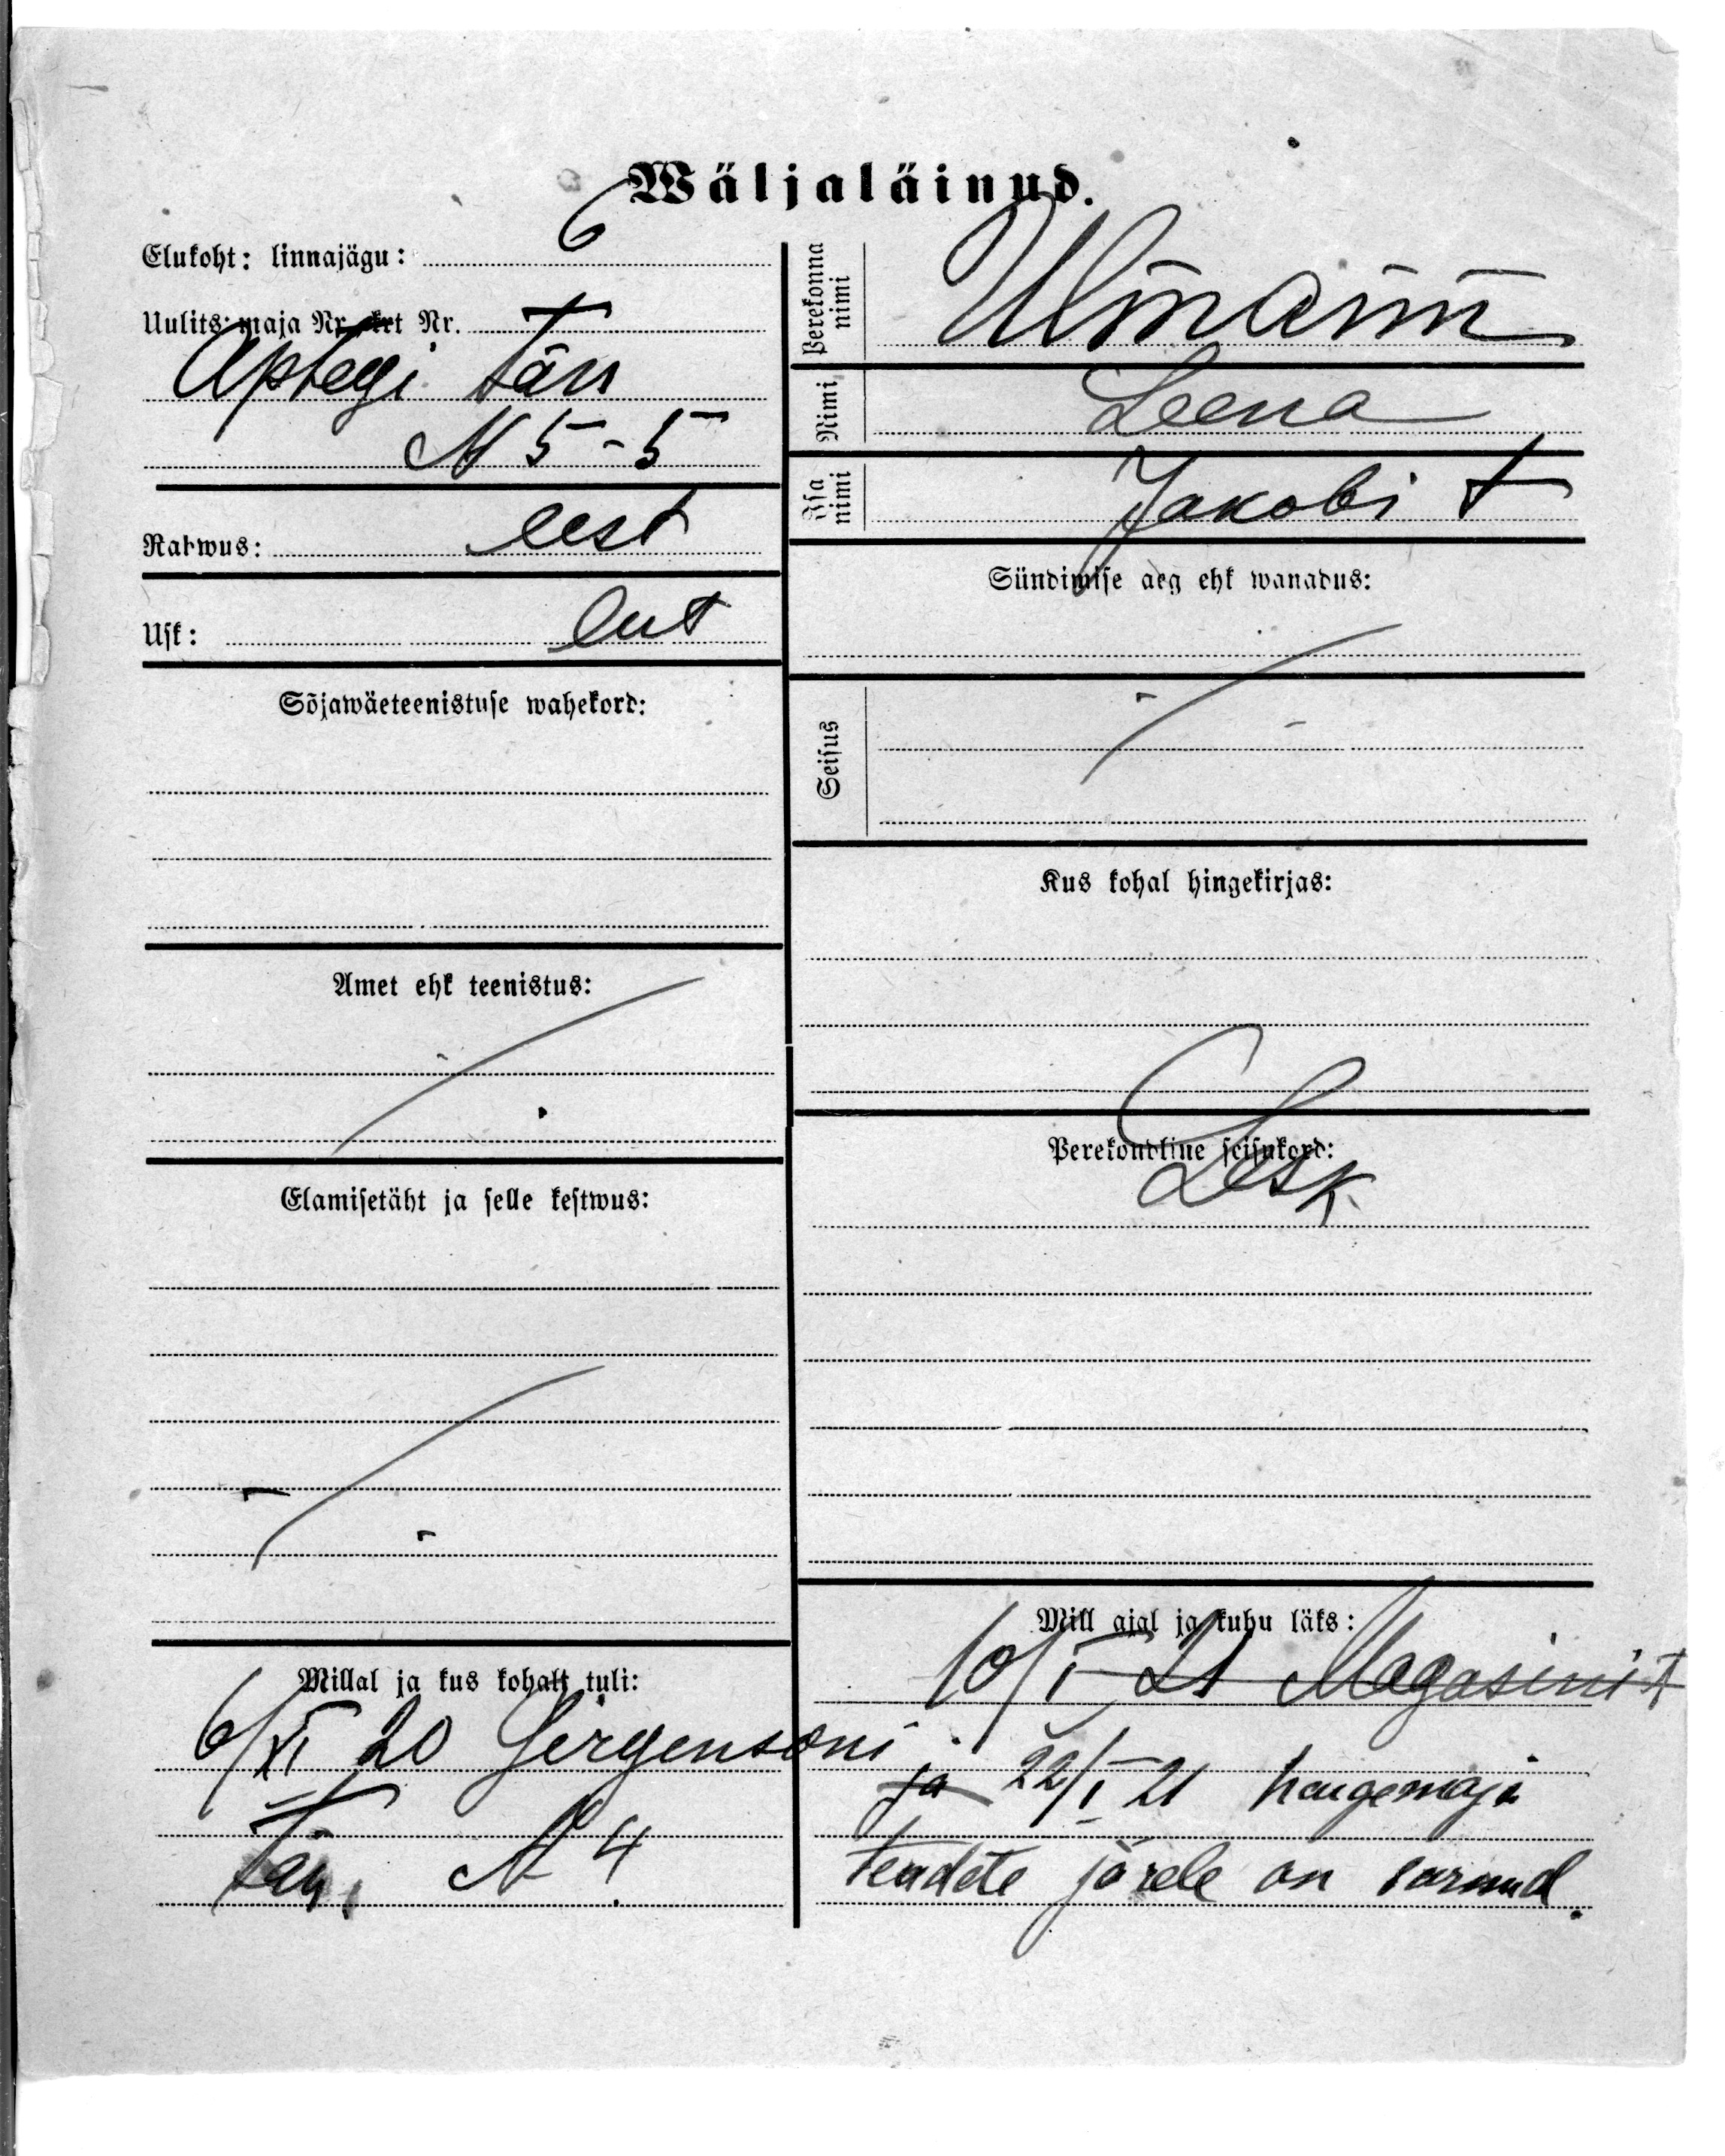 Wäljaläinud.
Elukoht: linnajägu: 6
Uulits: maja Nr. krt Nr.
Aptegi tän
№ 5-5
Rahwus: eest
Usk: lut
Sõjawäeteenistuse wahekord:
Amet ehk teenistus:
Elamisetäht ja selle kestwus:
Millal ja kus kohalt tuli:
6/XI 20 Jergensoni
tän, № 4.
Perekonna nimi
Ulmann
Nimi Leena
Isa nimi Jakobi t
Sündimise aeg ehk wanadus:
Seisus
Kus kohal hingekirjas:
Perekondline seisukord:
Lesk
Mill ajal ja kuhu läks:
10/I 21 Magasini t
ja 22/I 21 haigemaja
teadete järele on surnud.